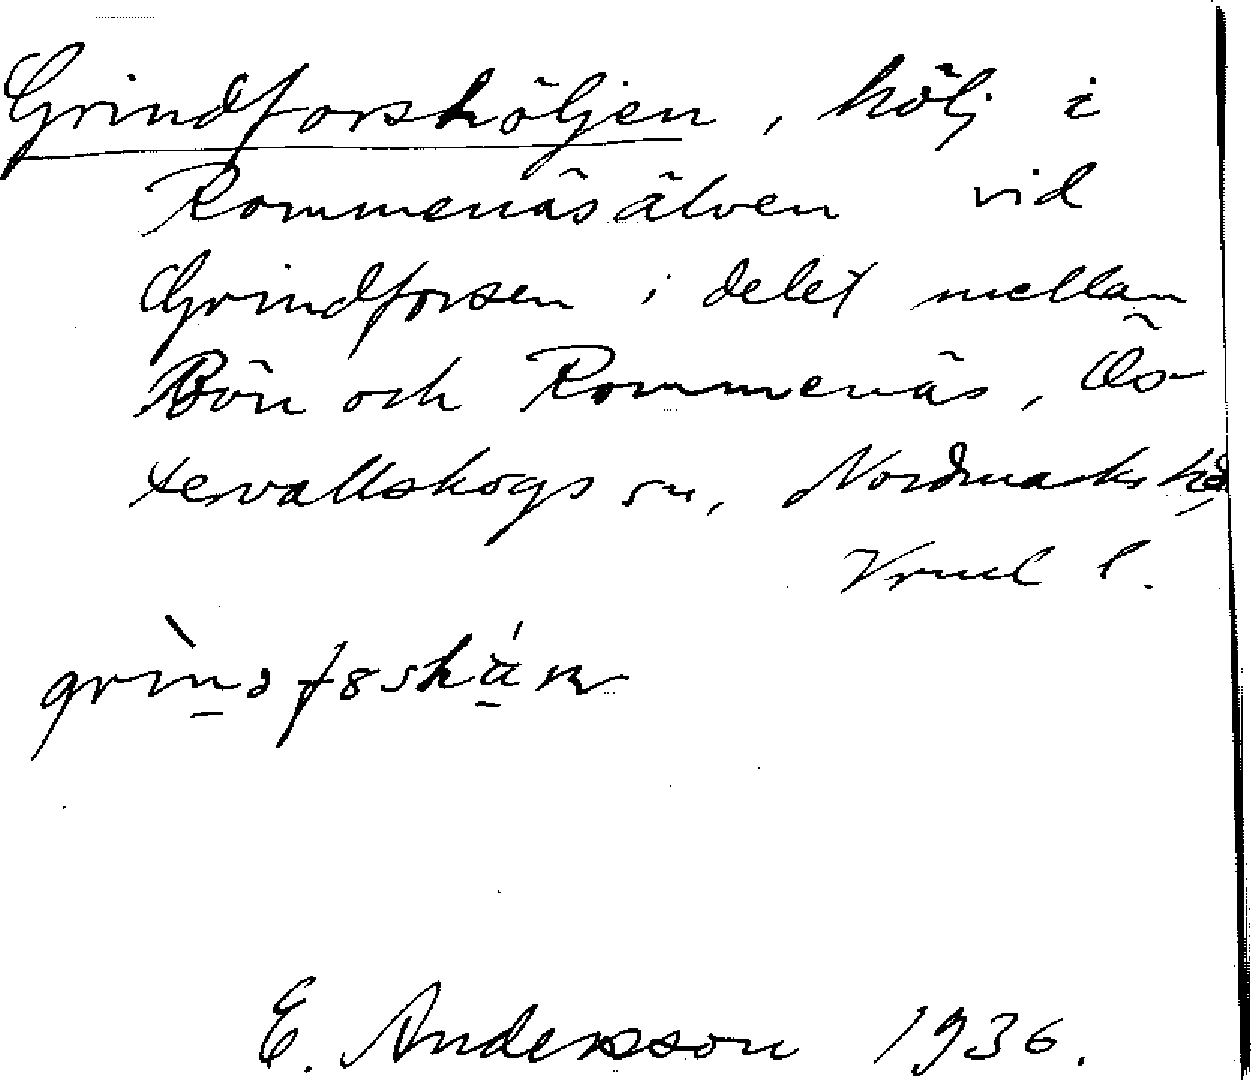 Grindforshöljen, hölj i
Rommenäsälven vid
Grindforsen i delet mellan
Bön och Rommenäs, Ös-
tervallskogs sn, Nordmarks hd
Vrml l.
E. Andersson 1936.